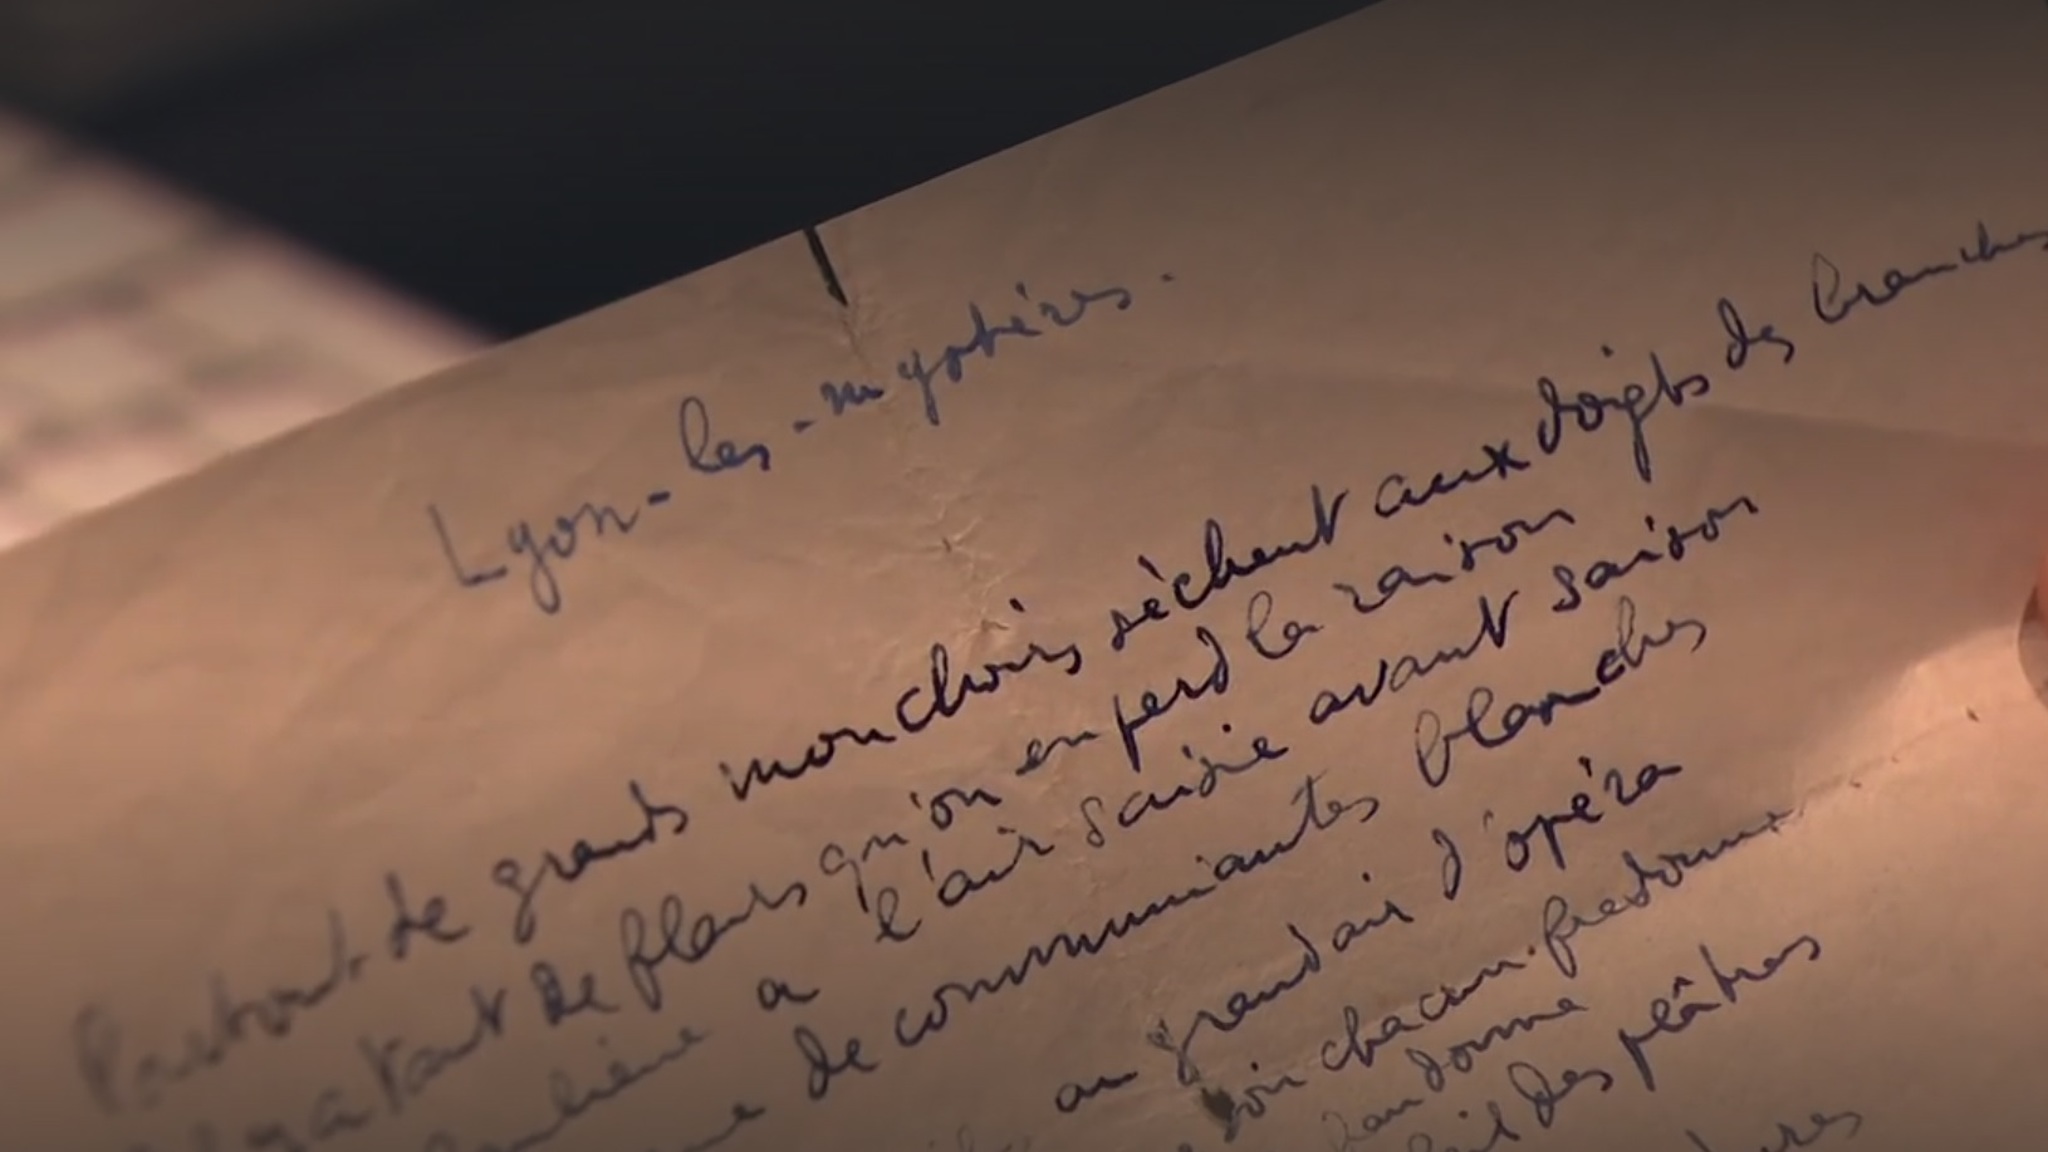 Lyon-les-mystères.
Partout de grands mouchoirs sèchent aux doigts des branches
Il y a tant de fleurs qu'on en perd la raison
lumière a l'air saisie avant saison
de communiantes blanches
au grand air d'opéra
chacun fredonne
donne
des plâtres